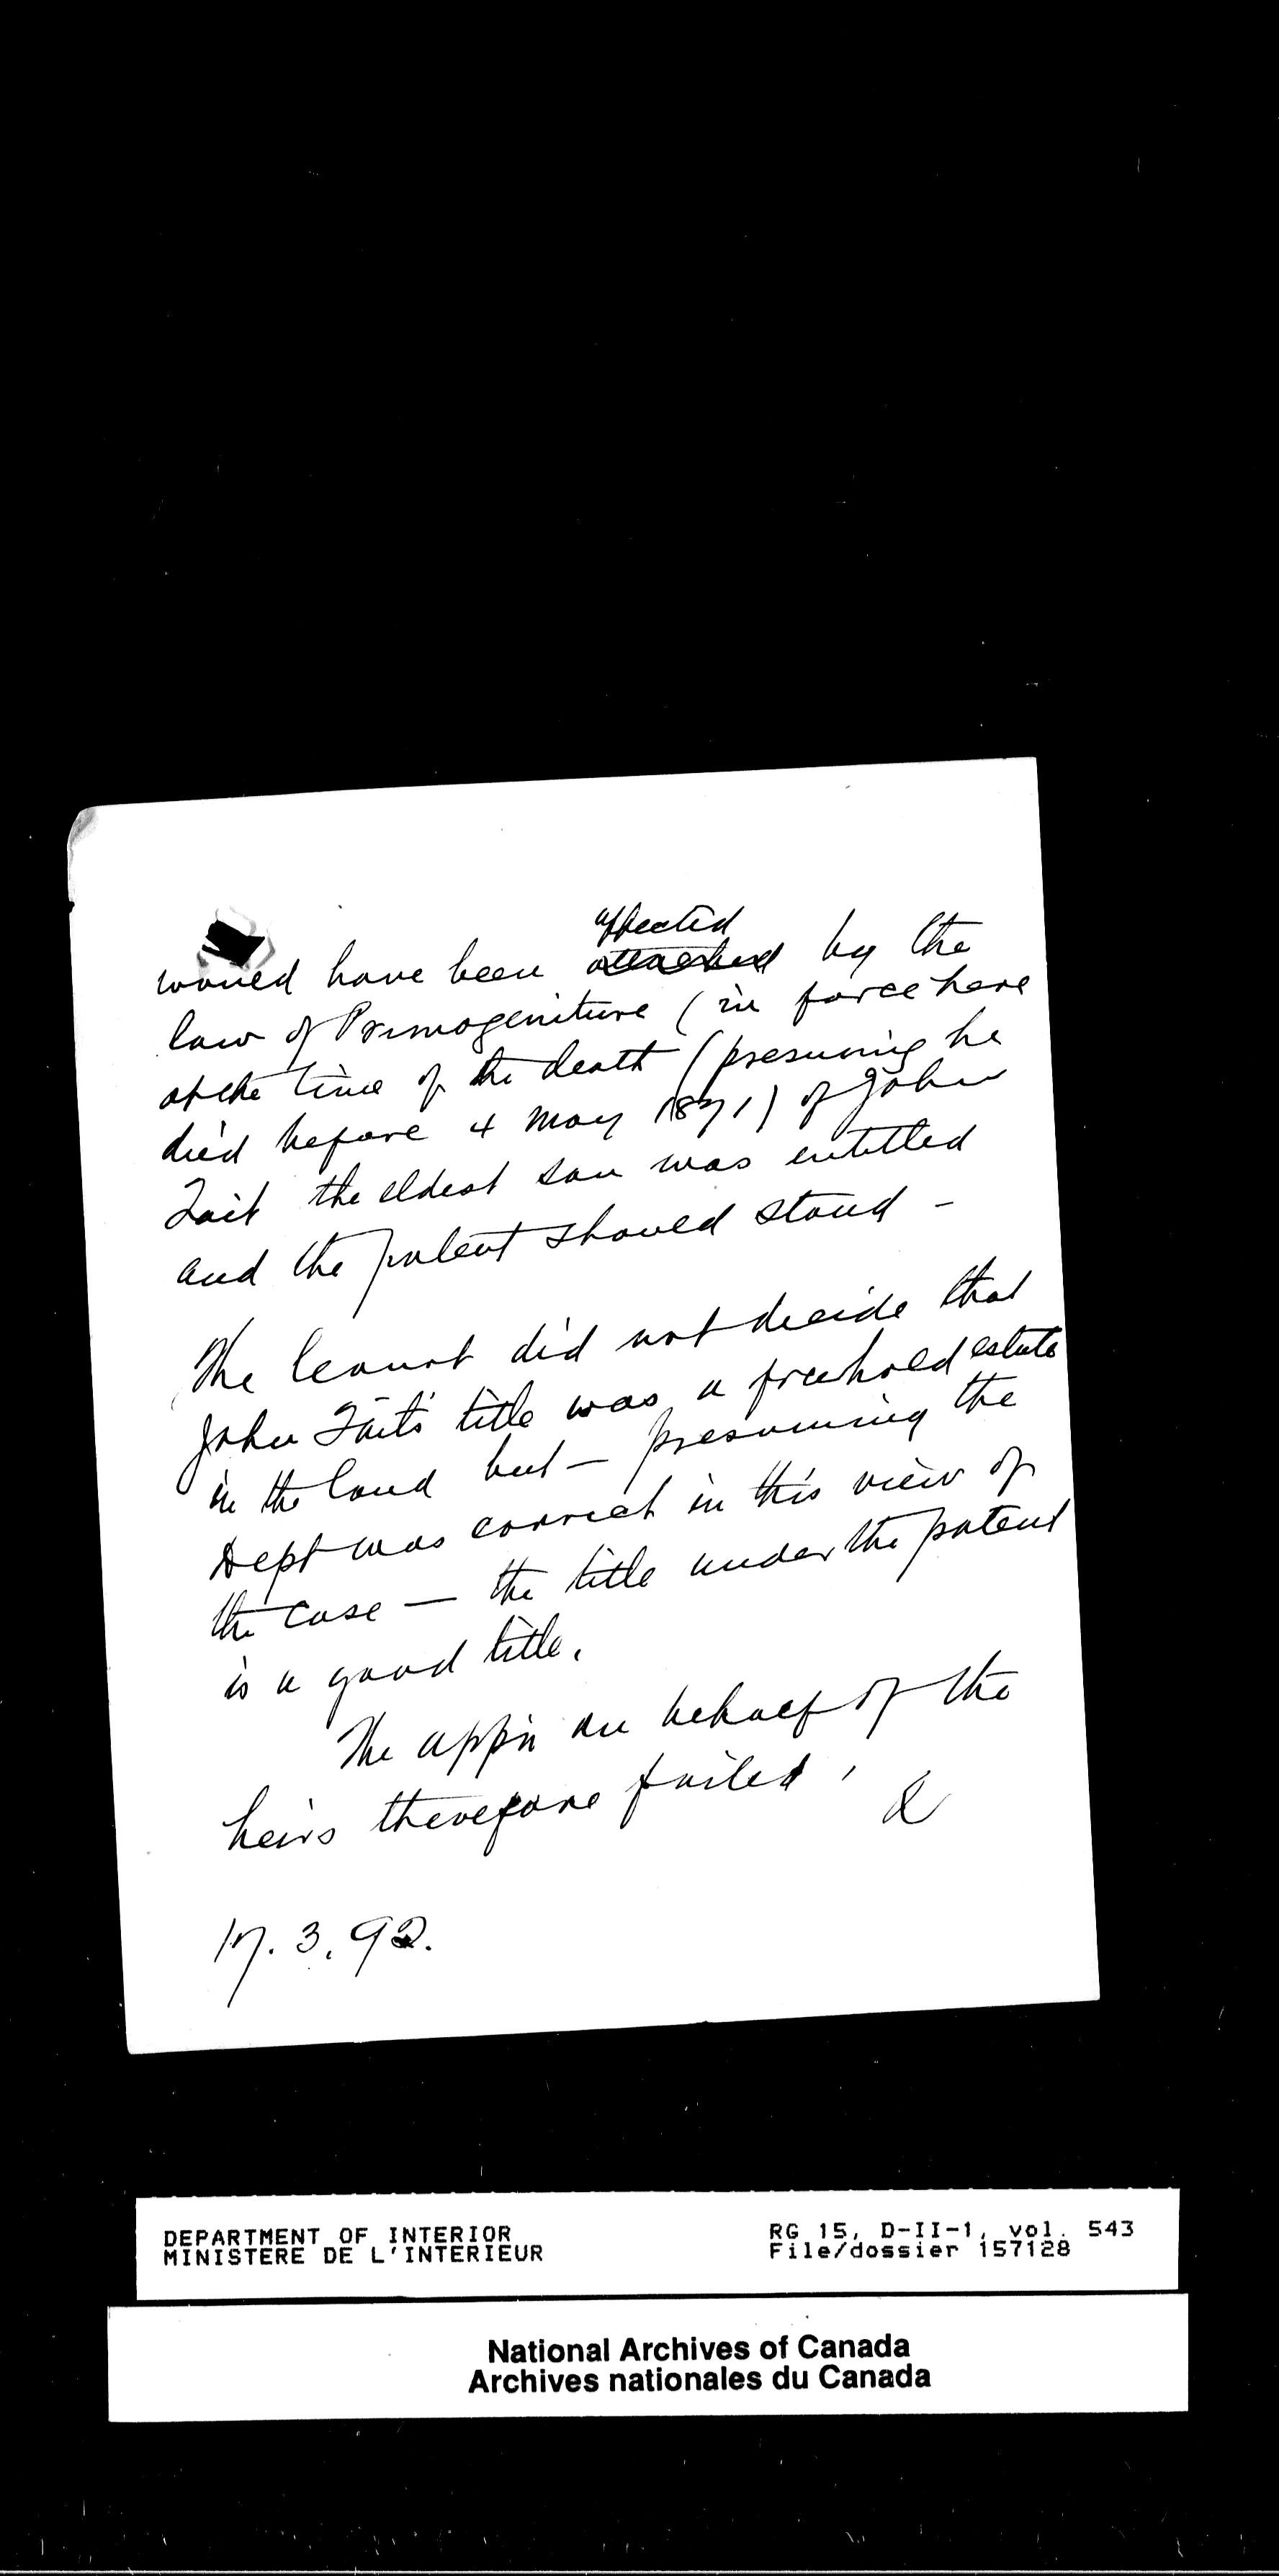 affected
would have been attached by the
law of Primogeniture (in force here
at the time of the death (presuming he
died before 4 May 1871) of John
Tait the eldest son was entitled
and the patent should stand -
The Court did not decide that
John Tait's title was a freehold estate
in the land but — presuming the
Dept was correct in this view of
the case — the title under the patent
is a good title.
The appn on behalf of the
heirs therefore failed.
17.3.92.
DEPARTMENT OF INTERIOR
MINISTERE DE L'INTERIEUR
RG 15, D-II-1, vol. 543
File/dossier 157128
National Archives of Canada
Archives nationales du Canada